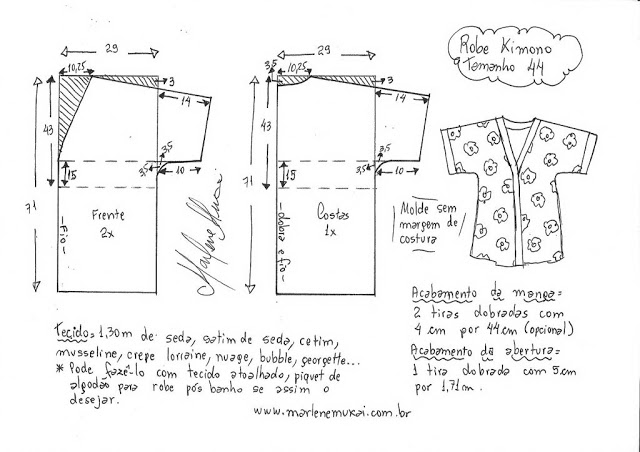 Robe Kimono
Tamanho 44
29
10,25
3
14
43
71
3,5
3,5
15
10
Frente
2x
-Fio-
Marlene Mukai
29
3,5
10,25
3
14
43
71
3,5
3,5
15
10
Costas
1x
-dobra e fio-
Molde sem
margem de
costura
Acabamento da manga=
2 tiras dobradas com
4 cm por 44 cm (opcional)
Acabamento da abertura=
1 tira dobrada com 5 cm
por 1,71 m.
Tecido= 1,30 m de seda, satim de seda, cetim,
musseline, crepe lorraine, nuage, bubble, georgette...
* Pode fazê-lo com tecido atoalhado, piquet de
algodão para robe pós banho se assim o
desejar.
www.marlenemukai.com.br